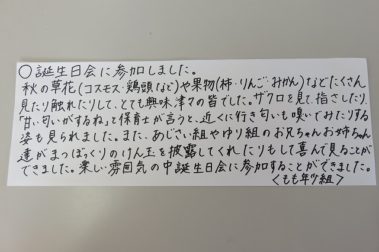 ○誕生日会に参加しました。
秋の草花(コスモス・鶏頭など)や果物(柿・りんご・みかん)などたくさん
見たり触れたりして、とても興味津々の皆でした。ザクロを見て、指さしたり、
「甘い匂いがするね」と保育士が言うと、近くに行き匂いも嗅いでみたりする
姿も見られました。また、あじさい組やゆり組のお兄ちゃんお姉ちゃん
達がまつぼっくりのけん玉を披露してくれたりもして喜んで見ることが
できました。楽しい雰囲気の中誕生日会に参加することができました。
<もも年少組>